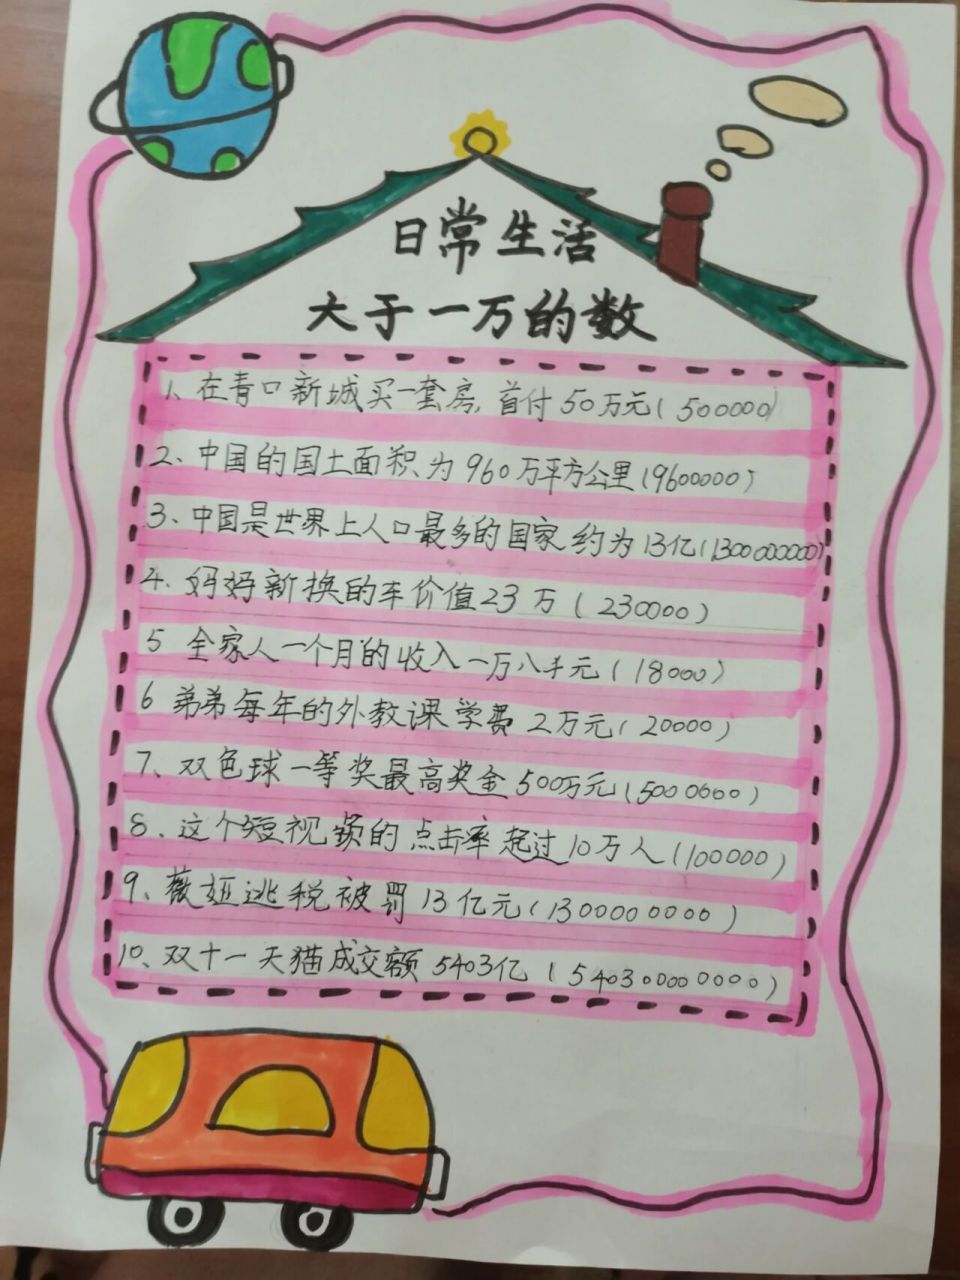 日常生活
大于一万的数
1、在青口新城买一套房,首付50万元(500000)
2、中国的国土面积为960万平方公里(9600000)
3、中国是世界上人口最多的国家约为13亿(1300000000)
4、妈妈新换的车价值23万(230000)
5 全家人一个月的收入一万八千元(18000)
6 弟弟每年的外教课学费2万元(20000)
7、双色球一等奖最高奖金500万元(5000000)
8、这个短视频的点击率超过10万人(100000)
9、薇娅逃税被罚13亿元(1300000000)
10、双十一天猫成交额5403亿(540300000000)